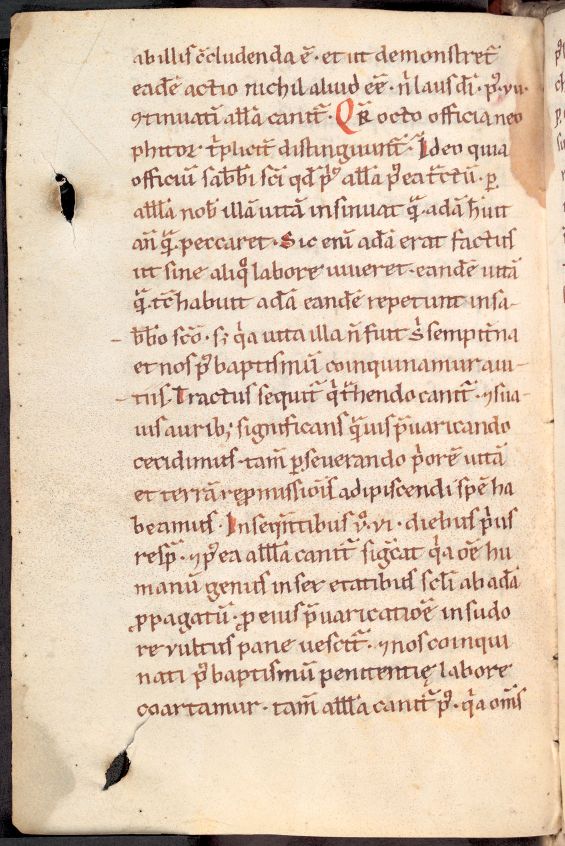 ab illis c̄cludenda ē · et ut demonstret᷑
eadē actio nichil aliud eē · n̄ laus dī · p᷒ · yu·
ꝯtinuatī all̄a cantat᷑ · Qr̄ octo officia neo
phitor᷑ t͛plicit᷑ distinguunt᷑ · Ideo quia
officiū sabb̄i sc̄i qd̄ p᷒ all̄a p᷒ea t͛ctū · ꝑ
all̄a nob᷒ illā uitā insinuat q̄ · adā hūit
an̄ q̄ peccaret · Sic enī adā erat factus
ut sine aliqͦ labore uiueret · eandē uitā
q̄ · tc̄ habuit adā eandē repetunt in sa-
bb̄o sc̄o · s; q̇a uita illa n̄ fuit s̄ sempit͛na
et nos p᷒ baptismū coinquinamur aui-
tiis. Tractus sequit᷑ q̇ t͛hendo cantat᷑ · ⁊ sua-
uis aurib; significans q̄uis p̄uaricando
cecidimus · tam̄ ꝑseuerando ṗorē uitā
et terrā rep̱missiōis adipiscendi spē ha
beamus · Inseqūtibus ů · vi · diebus ṗus
resp̄ · ⁊ p᷒ea all̄l̄a cantat᷑ siḡcat q̇a oē hu
manū genus in sex etatibus sc̄li ab adā
ꝓpagatū · ꝓ eius p̄uaricatioē in sudo
re vultus pane uescit᷑ · ⁊ nos coinqui
nati p᷒ baptismū penitentię labore
coartamur · tam̄ all̄l̄a cantat᷑ p᷒ · q̇a om̄s